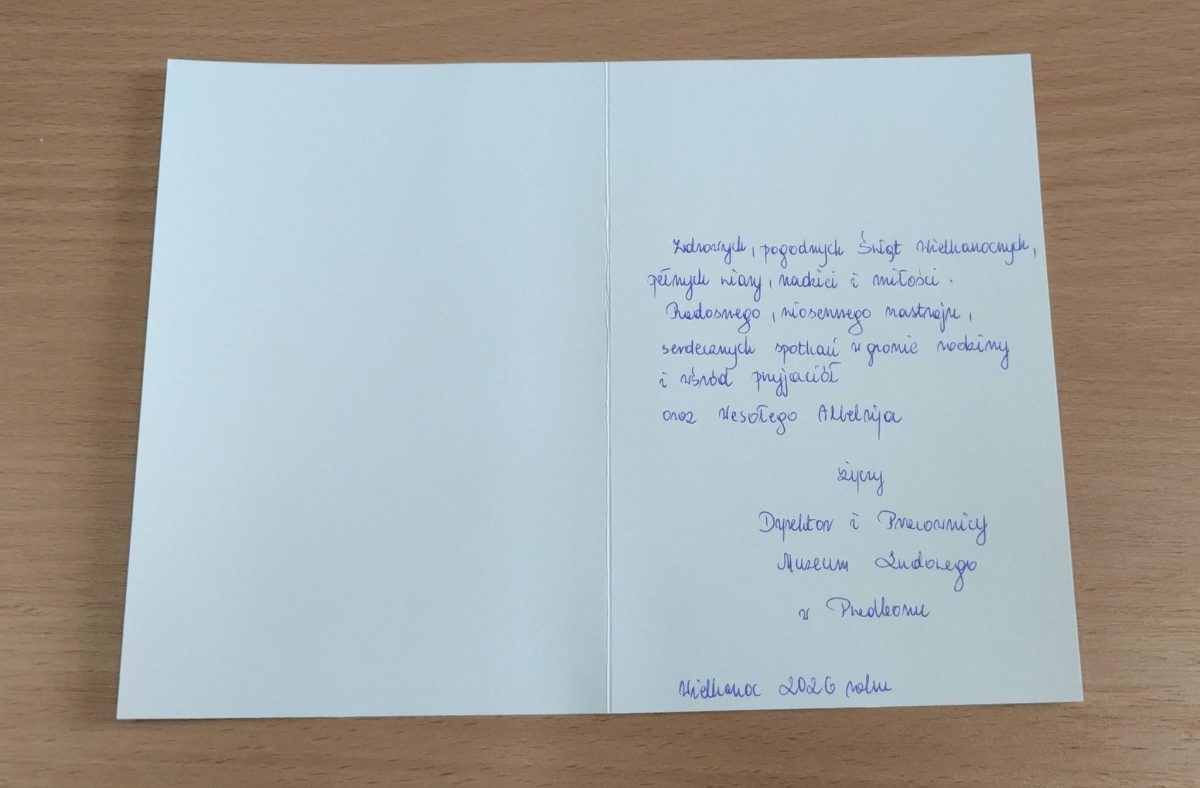 Zdrowych, pogodnych Świąt Wielkanocnych,
pełnych wiary, nadziei i miłości.
Radosnego, wiosennego nastroju,
serdecznych spotkań w gronie rodziny
i wśród przyjaciół
oraz Wesołego Alleluja
życzy
Dyrektor i Pracownicy
Muzeum Ludowego
w
Wielkanoc 2026 roku